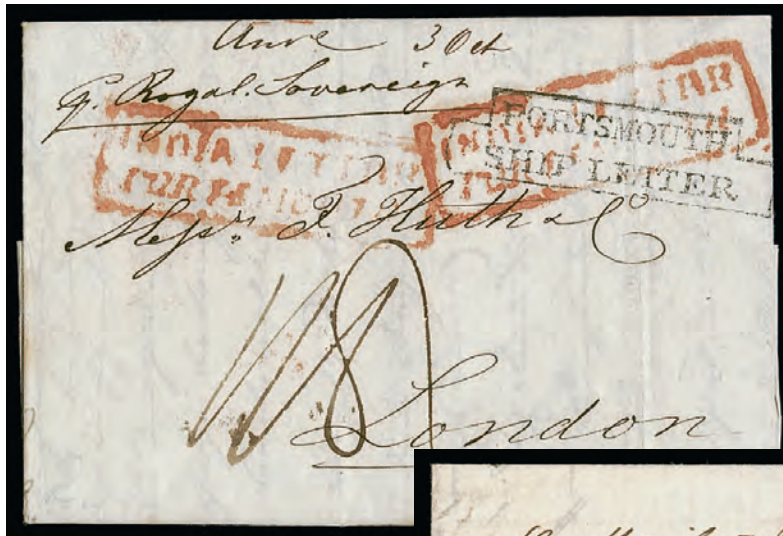 3 Oct
p. Royal Sovereign
INDIA LETTER
PORTSMOUTH
PORTSMOUTH
SHIP LETTER
Messrs. F. Huth & Co
London